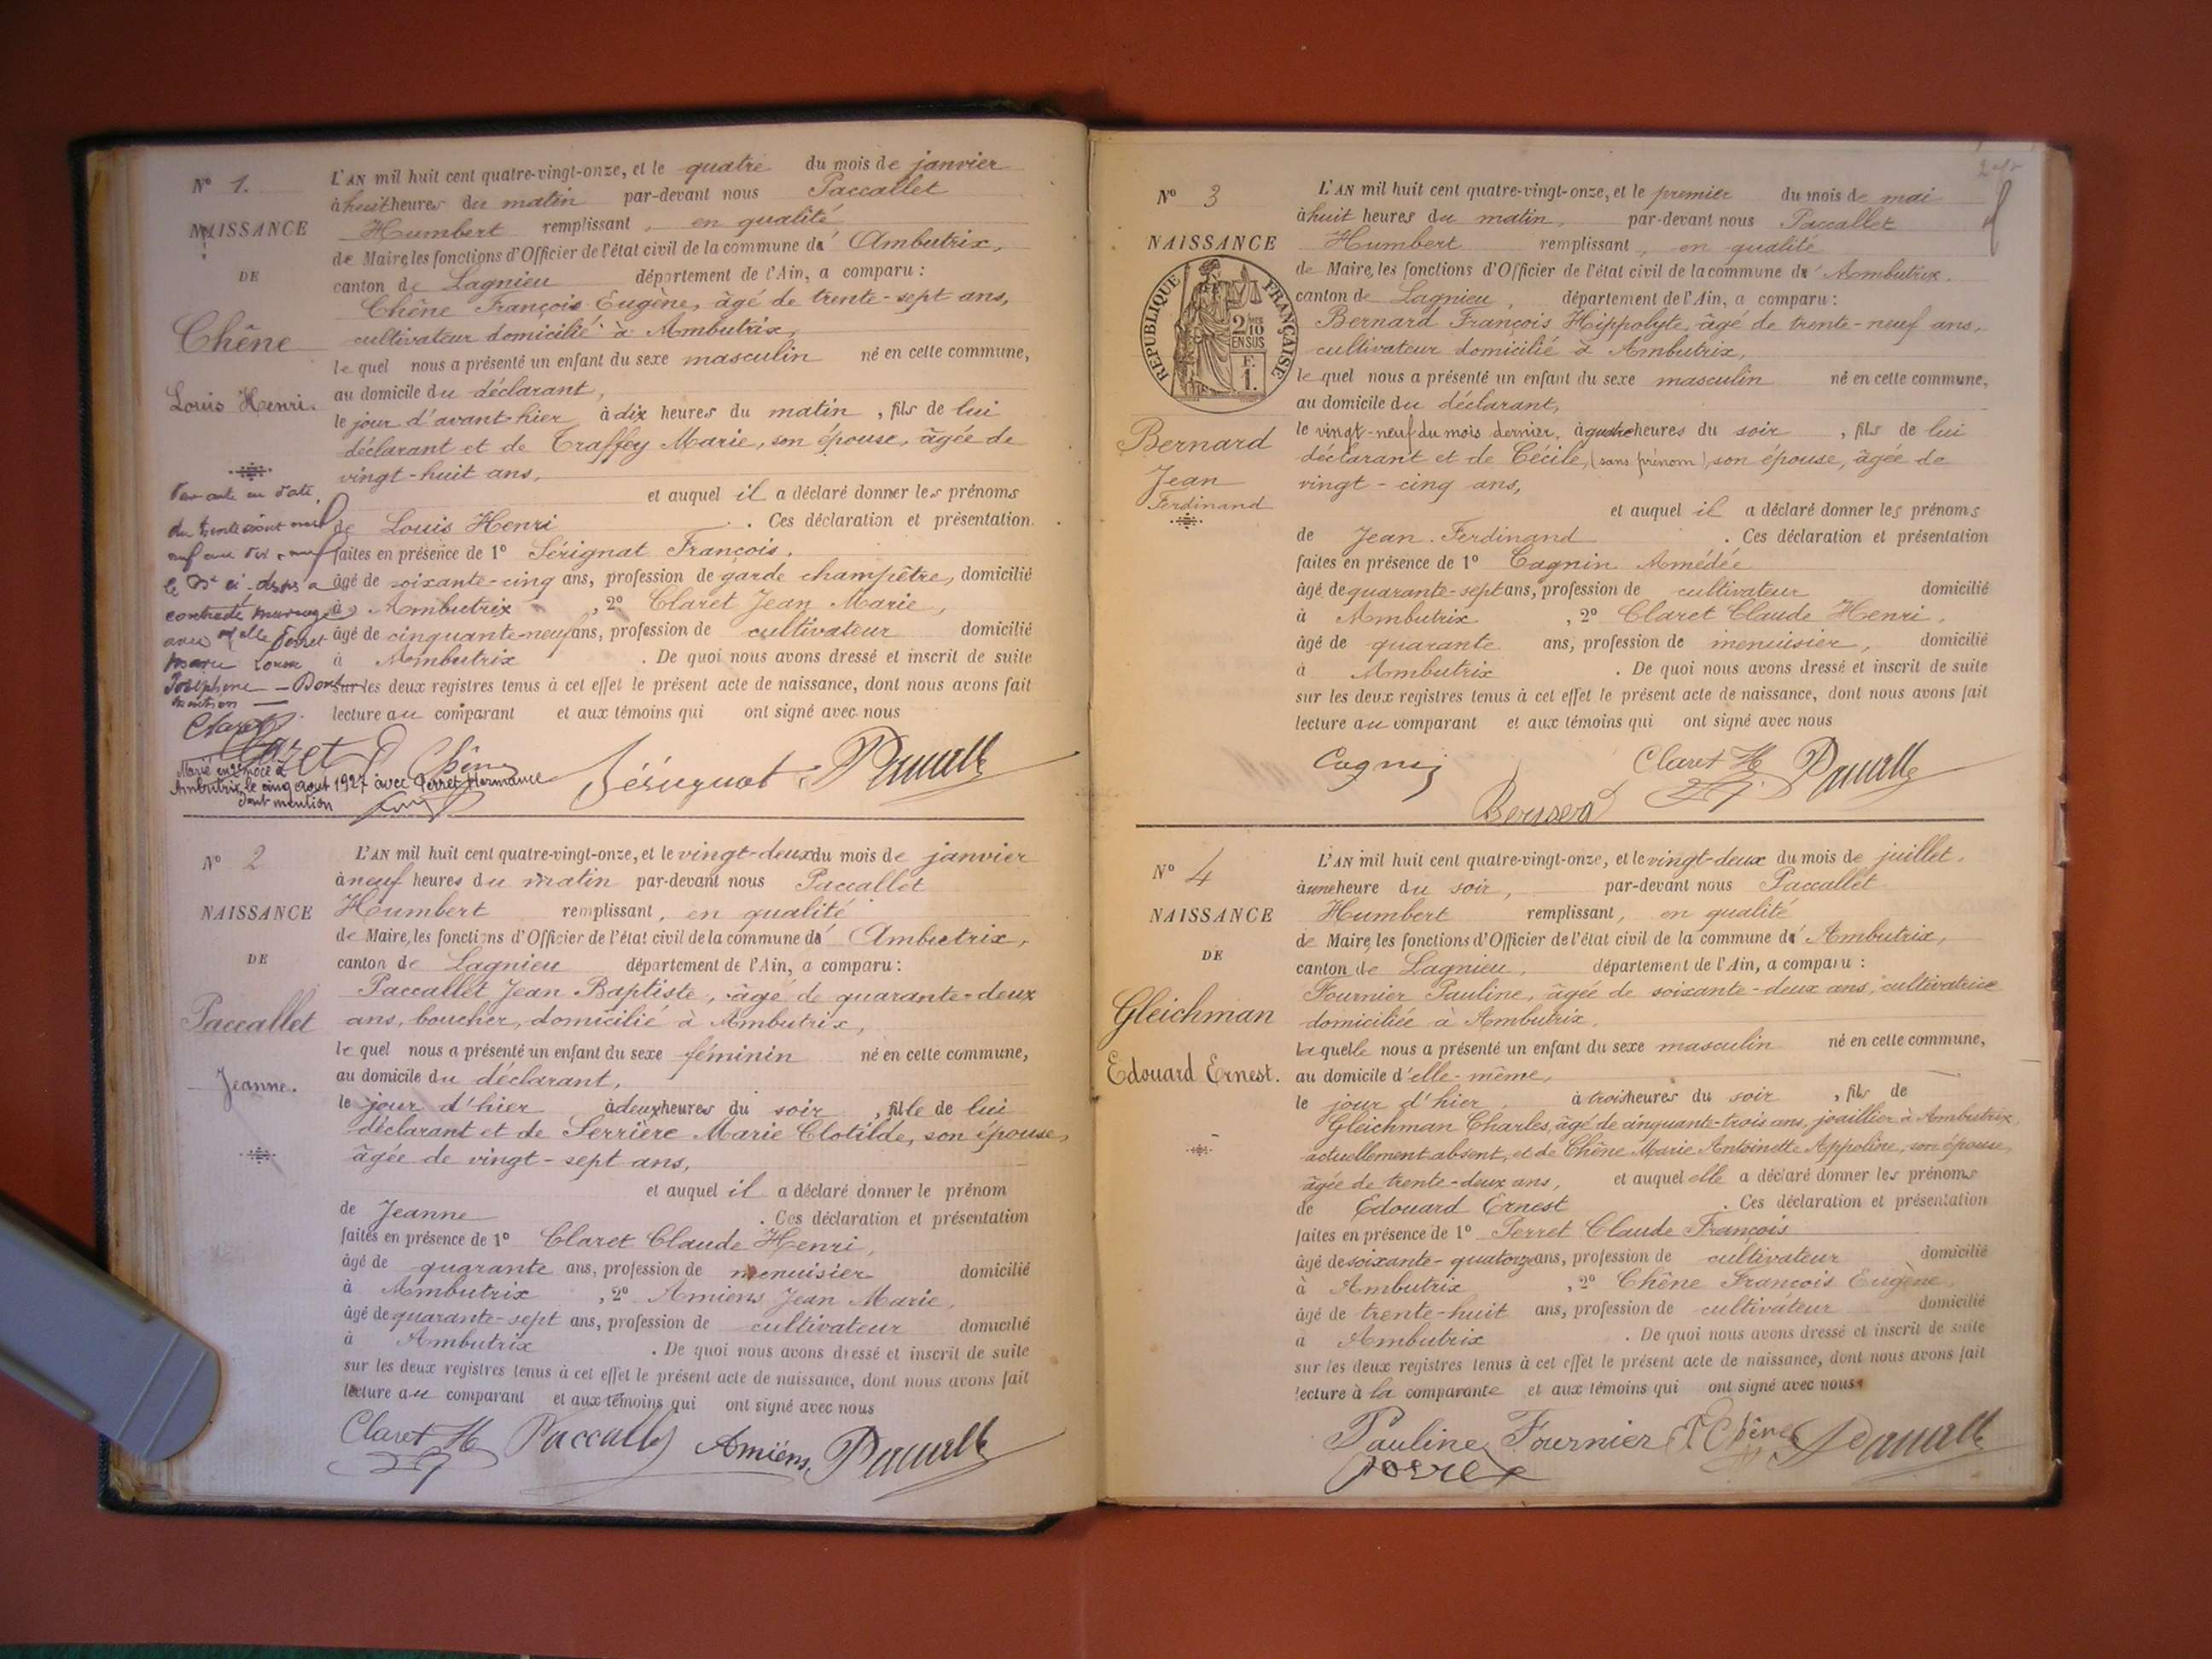 N° 1.
NAISSANCE
DE
Chêne
Louis Henri.
L'AN mil huit cent quatre-vingt-onze, et le quatre du mois de janvier
à huit heures du matin par-devant nous Paccallet
Humbert remplissant, en qualité
de Maire, les fonctions d'Officier de l'état civil de la commune d'Ambutrix,
canton de Lagnieu département de l'Ain, a comparu :
Chêne François Eugène, âgé de trente-sept ans,
cultivateur domicilié à Ambutrix,
lequel nous a présenté un enfant du sexe masculin né en cette commune,
au domicile du déclarant,
le jour d'avant-hier à dix heures du matin, fils de lui
déclarant et de Traffey Marie, son épouse, âgée de
vingt-huit ans,
et auquel il a déclaré donner les prénoms
de Louis Henri. Ces déclaration et présentation
faites en présence de 1° Sérignat François,
âgé de soixante-cinq ans, profession de garde champêtre, domicilié
à Ambutrix, 2° Claret Jean Marie,
âgé de cinquante-neuf ans, profession de cultivateur domicilié
à Ambutrix. De quoi nous avons dressé et inscrit de suite
sur les deux registres tenus à cet effet le présent acte de naissance, dont nous avons fait
lecture au comparant et aux témoins qui ont signé avec nous
Par acte en date
du trente août mil
neuf cent dix-neuf
le Sr ci-dessus a
contracté mariage
avec Melle Perret
Marie Louise
Joséphine — Dont
mention —
Claret
Claret Chêne Sérignat Paccallet
Marié en 2e noce à
Ambutrix, le cinq aout 1927 avec Perret Hermance
dont mention
N° 2
NAISSANCE
DE
Paccallet
Jeanne.
L'AN mil huit cent quatre-vingt-onze, et le vingt-deux du mois de janvier
à neuf heures du matin par-devant nous Paccallet
Humbert remplissant, en qualité
de Maire, les fonctions d'Officier de l'état civil de la commune d'Ambutrix,
canton de Lagnieu département de l'Ain, a comparu :
Paccallet Jean Baptiste, âgé de quarante-deux
ans, boucher, domicilié à Ambutrix,
lequel nous a présenté un enfant du sexe féminin né en cette commune,
au domicile du déclarant,
le jour d'hier à deux heures du soir, fille de lui
déclarant et de Serrière Marie Clotilde, son épouse,
âgée de vingt-sept ans,
et auquel il a déclaré donner le prénom
de Jeanne. Ces déclaration et présentation
faites en présence de 1° Claret Claude Henri,
âgé de quarante ans, profession de menuisier domicilié
à Ambutrix, 2° Amiens Jean Marie,
âgé de quarante-sept ans, profession de cultivateur domicilié
à Ambutrix. De quoi nous avons dressé et inscrit de suite
sur les deux registres tenus à cet effet le présent acte de naissance, dont nous avons fait
lecture au comparant et aux témoins qui ont signé avec nous
Claret H Paccallet Amiens Paccallet
N° 3
NAISSANCE
REPUBLIQUE FRANÇAISE
2/10 EN SUS
F. 1.
Bernard
Jean
Ferdinand
L'AN mil huit cent quatre-vingt-onze, et le premier du mois de mai
à huit heures du matin, par-devant nous Paccallet
Humbert remplissant, en qualité
de Maire, les fonctions d'Officier de l'état civil de la commune d'Ambutrix.
canton de Lagnieu, département de l'Ain, a comparu :
Bernard François Hippolyte, âgé de trente-neuf ans,
cultivateur domicilié à Ambutrix,
lequel nous a présenté un enfant du sexe masculin né en cette commune,
au domicile du déclarant,
le vingt-neuf du mois dernier, à quatre heures du soir, fils de lui
déclarant et de Cécile, (sans prénom), son épouse, âgée de
vingt-cinq ans,
et auquel il a déclaré donner les prénoms
de Jean Ferdinand. Ces déclaration et présentation
faites en présence de 1° Cagnin Amédée
âgé de quarante-sept ans, profession de cultivateur domicilié
à Ambutrix, 2° Claret Claude Henri,
âgé de quarante ans, profession de menuisier, domicilié
à Ambutrix. De quoi nous avons dressé et inscrit de suite
sur les deux registres tenus à cet effet le présent acte de naissance, dont nous avons fait
lecture au comparant et aux témoins qui ont signé avec nous
Cagnin Claret H Paccallet
Bernard
N° 4
NAISSANCE
DE
Gleichman
Edouard Ernest.
L'AN mil huit cent quatre-vingt-onze, et le vingt-deux du mois de juillet,
à une heure du soir, par-devant nous Paccallet
Humbert remplissant, en qualité
de Maire, les fonctions d'Officier de l'état civil de la commune d'Ambutrix,
canton de Lagnieu, département de l'Ain, a comparu :
Fournier Pauline, âgée de soixante-deux ans, cultivatrice
domiciliée à Ambutrix,
laquelle nous a présenté un enfant du sexe masculin né en cette commune,
au domicile d'elle-même,
le jour d'hier, à trois heures du soir, fils de
Gleichman Charles, âgé de cinquante-trois ans, joaillier à Ambutrix,
actuellement absent, et de Chêne Marie Antoinette Appoline, son épouse,
âgée de trente-deux ans, et auquel elle a déclaré donner les prénoms
de Edouard Ernest. Ces déclaration et présentation
faites en présence de 1° Perret Claude François
âgé de soixante-quatorze ans, profession de cultivateur domicilié
à Ambutrix, 2° Chêne François Eugène,
âgé de trente-huit ans, profession de cultivateur domicilié
à Ambutrix. De quoi nous avons dressé et inscrit de suite
sur les deux registres tenus à cet effet le présent acte de naissance, dont nous avons fait
lecture à la comparante et aux témoins qui ont signé avec nous.
Pauline Fournier F. Chêne Paccallet
Perret